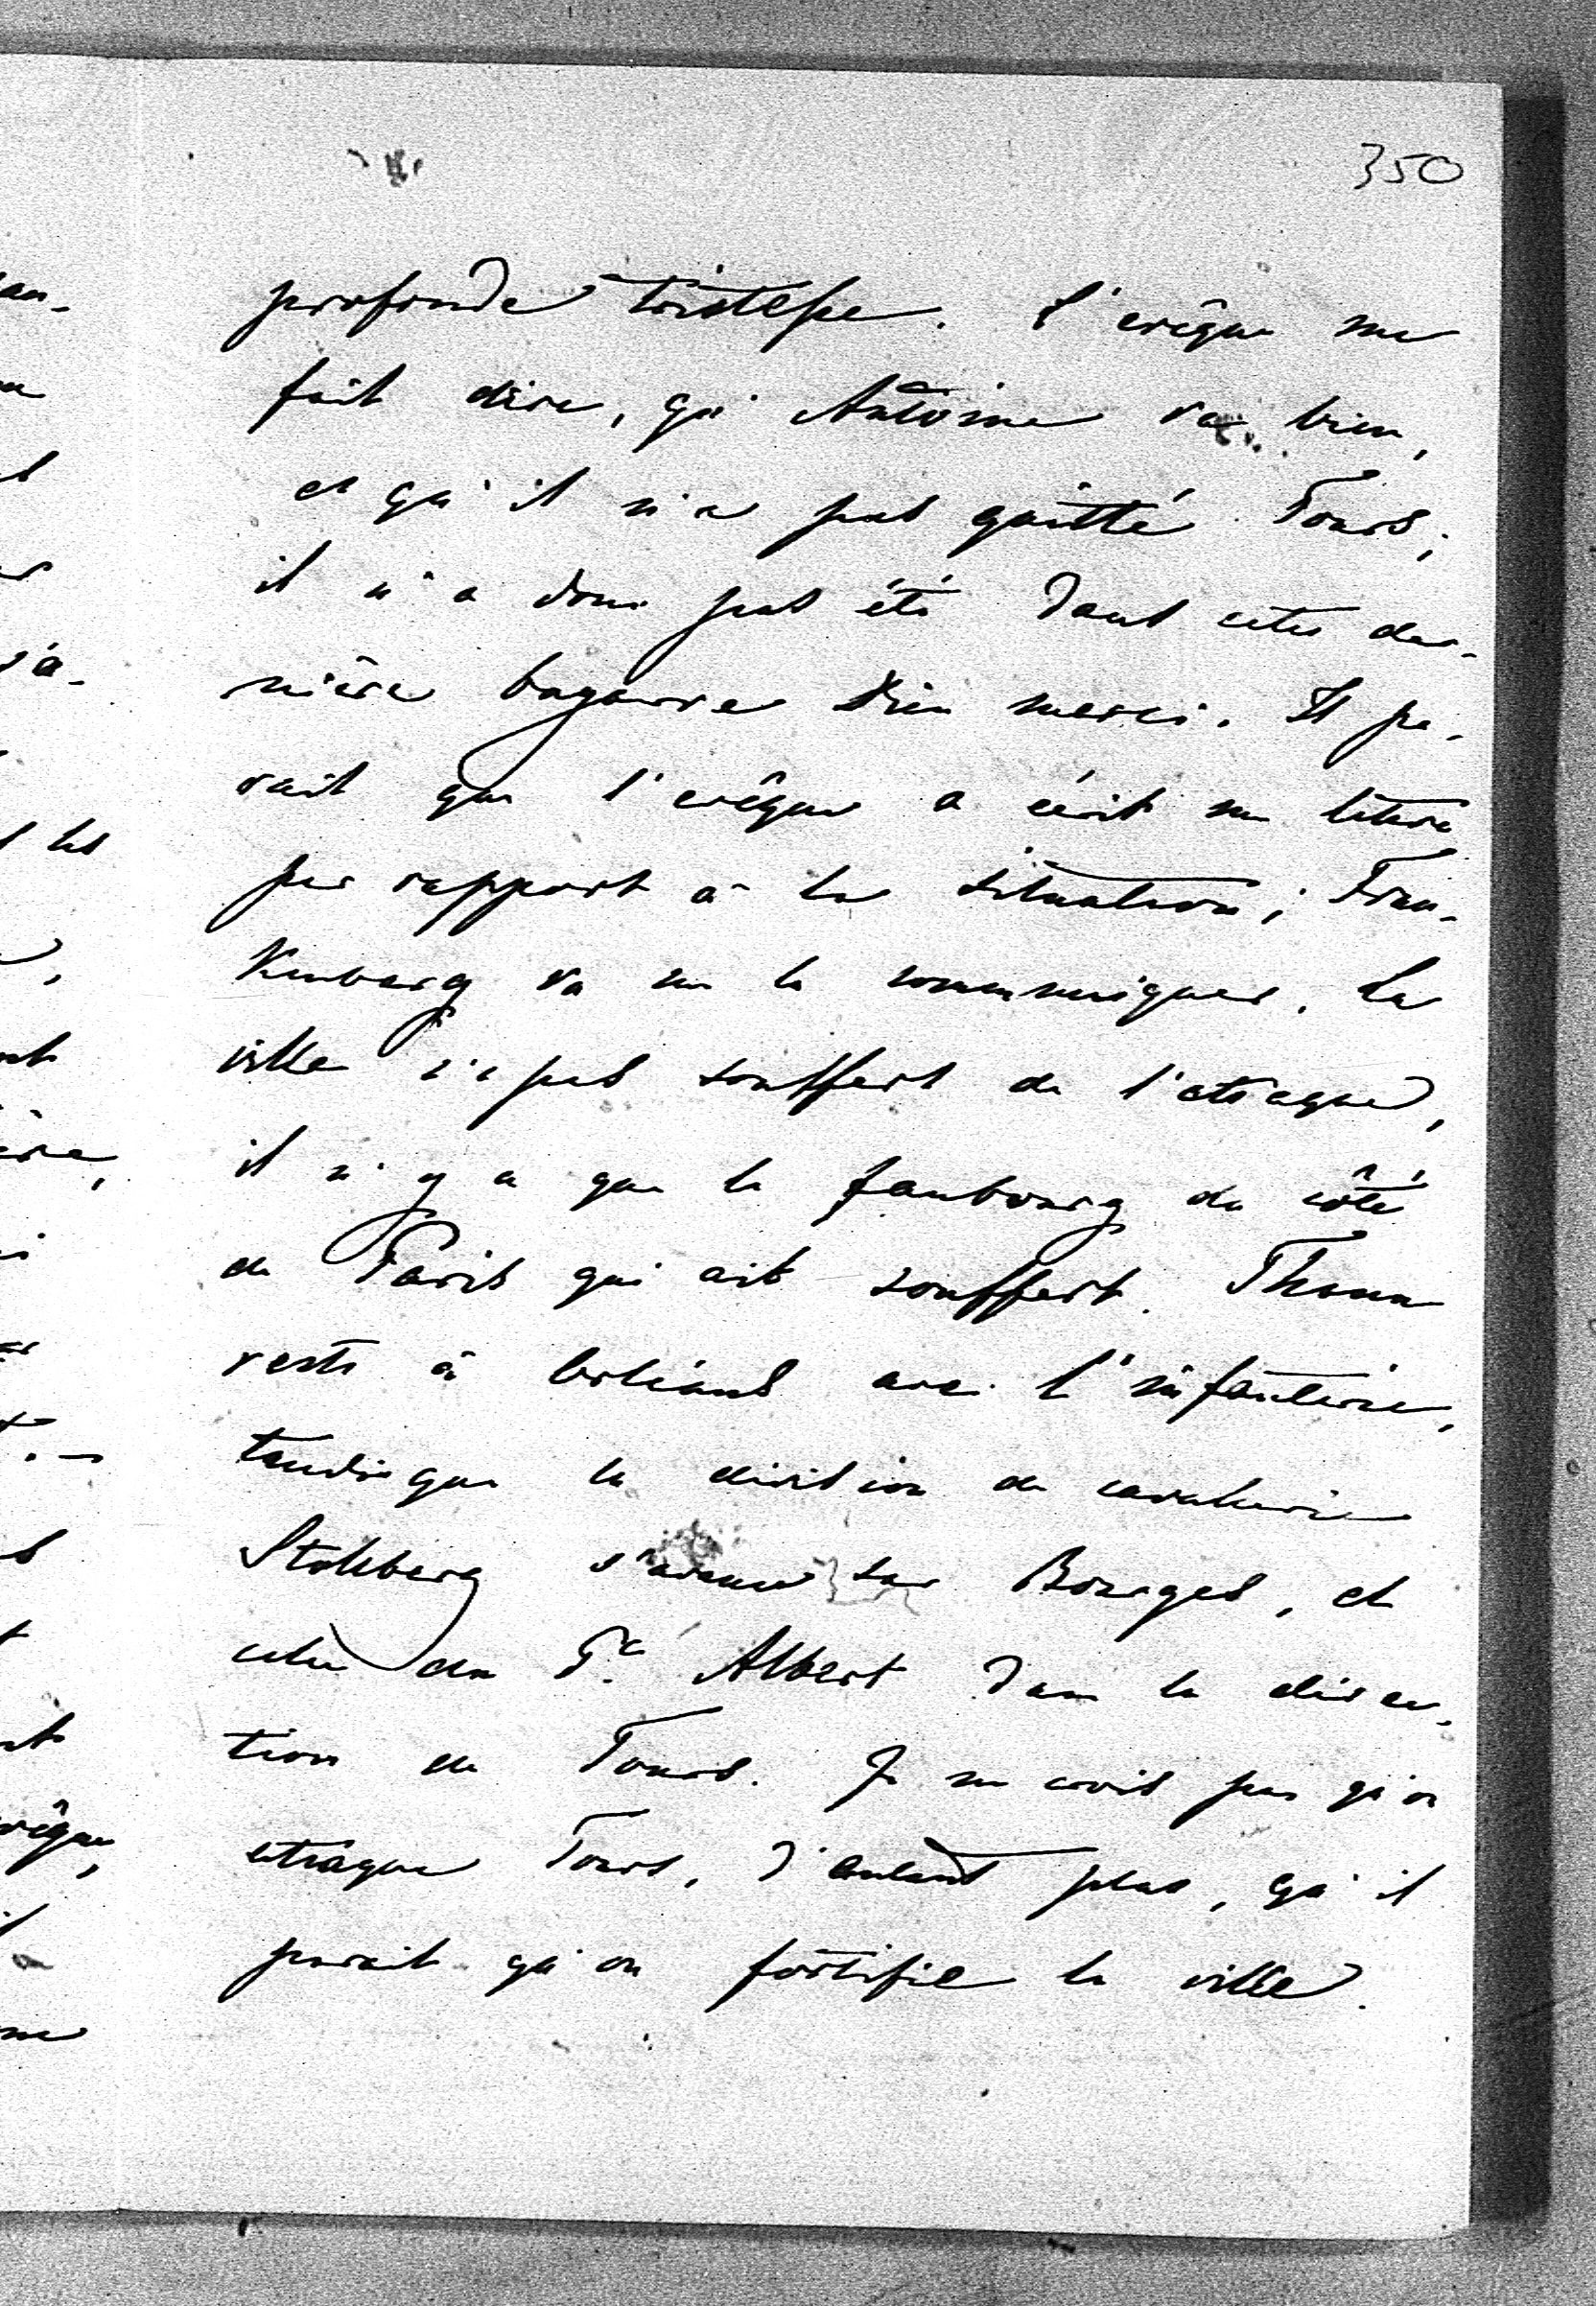 350
profonde tristesse. L'evêque me
fait dire, qu'Antoine va bien,
et qu'il n'a pas quitté Tours;
il n'a donc pas été dans cette der-
nière bagarre Dieu merci. Il pa-
rait que l'evêque a écrit une lettre
par rapport à la situation; Fran-
kenberg va me la communiquer. La
ville n'a pas souffert de l'attaque,
il n'y a que le faubourg du côté
de Paris qui ait souffert. Thann
reste à Orléans avec l'infanterie,
tandisque la division de cavalerie
Stolberg s'avance sur Bourges, et
celle du Pce Albert dans la direc-
tion de Tours. Je ne crois pas qu'on
attaque Tours, d'autant plus, qu'il
parait qu'on fortifie la ville.